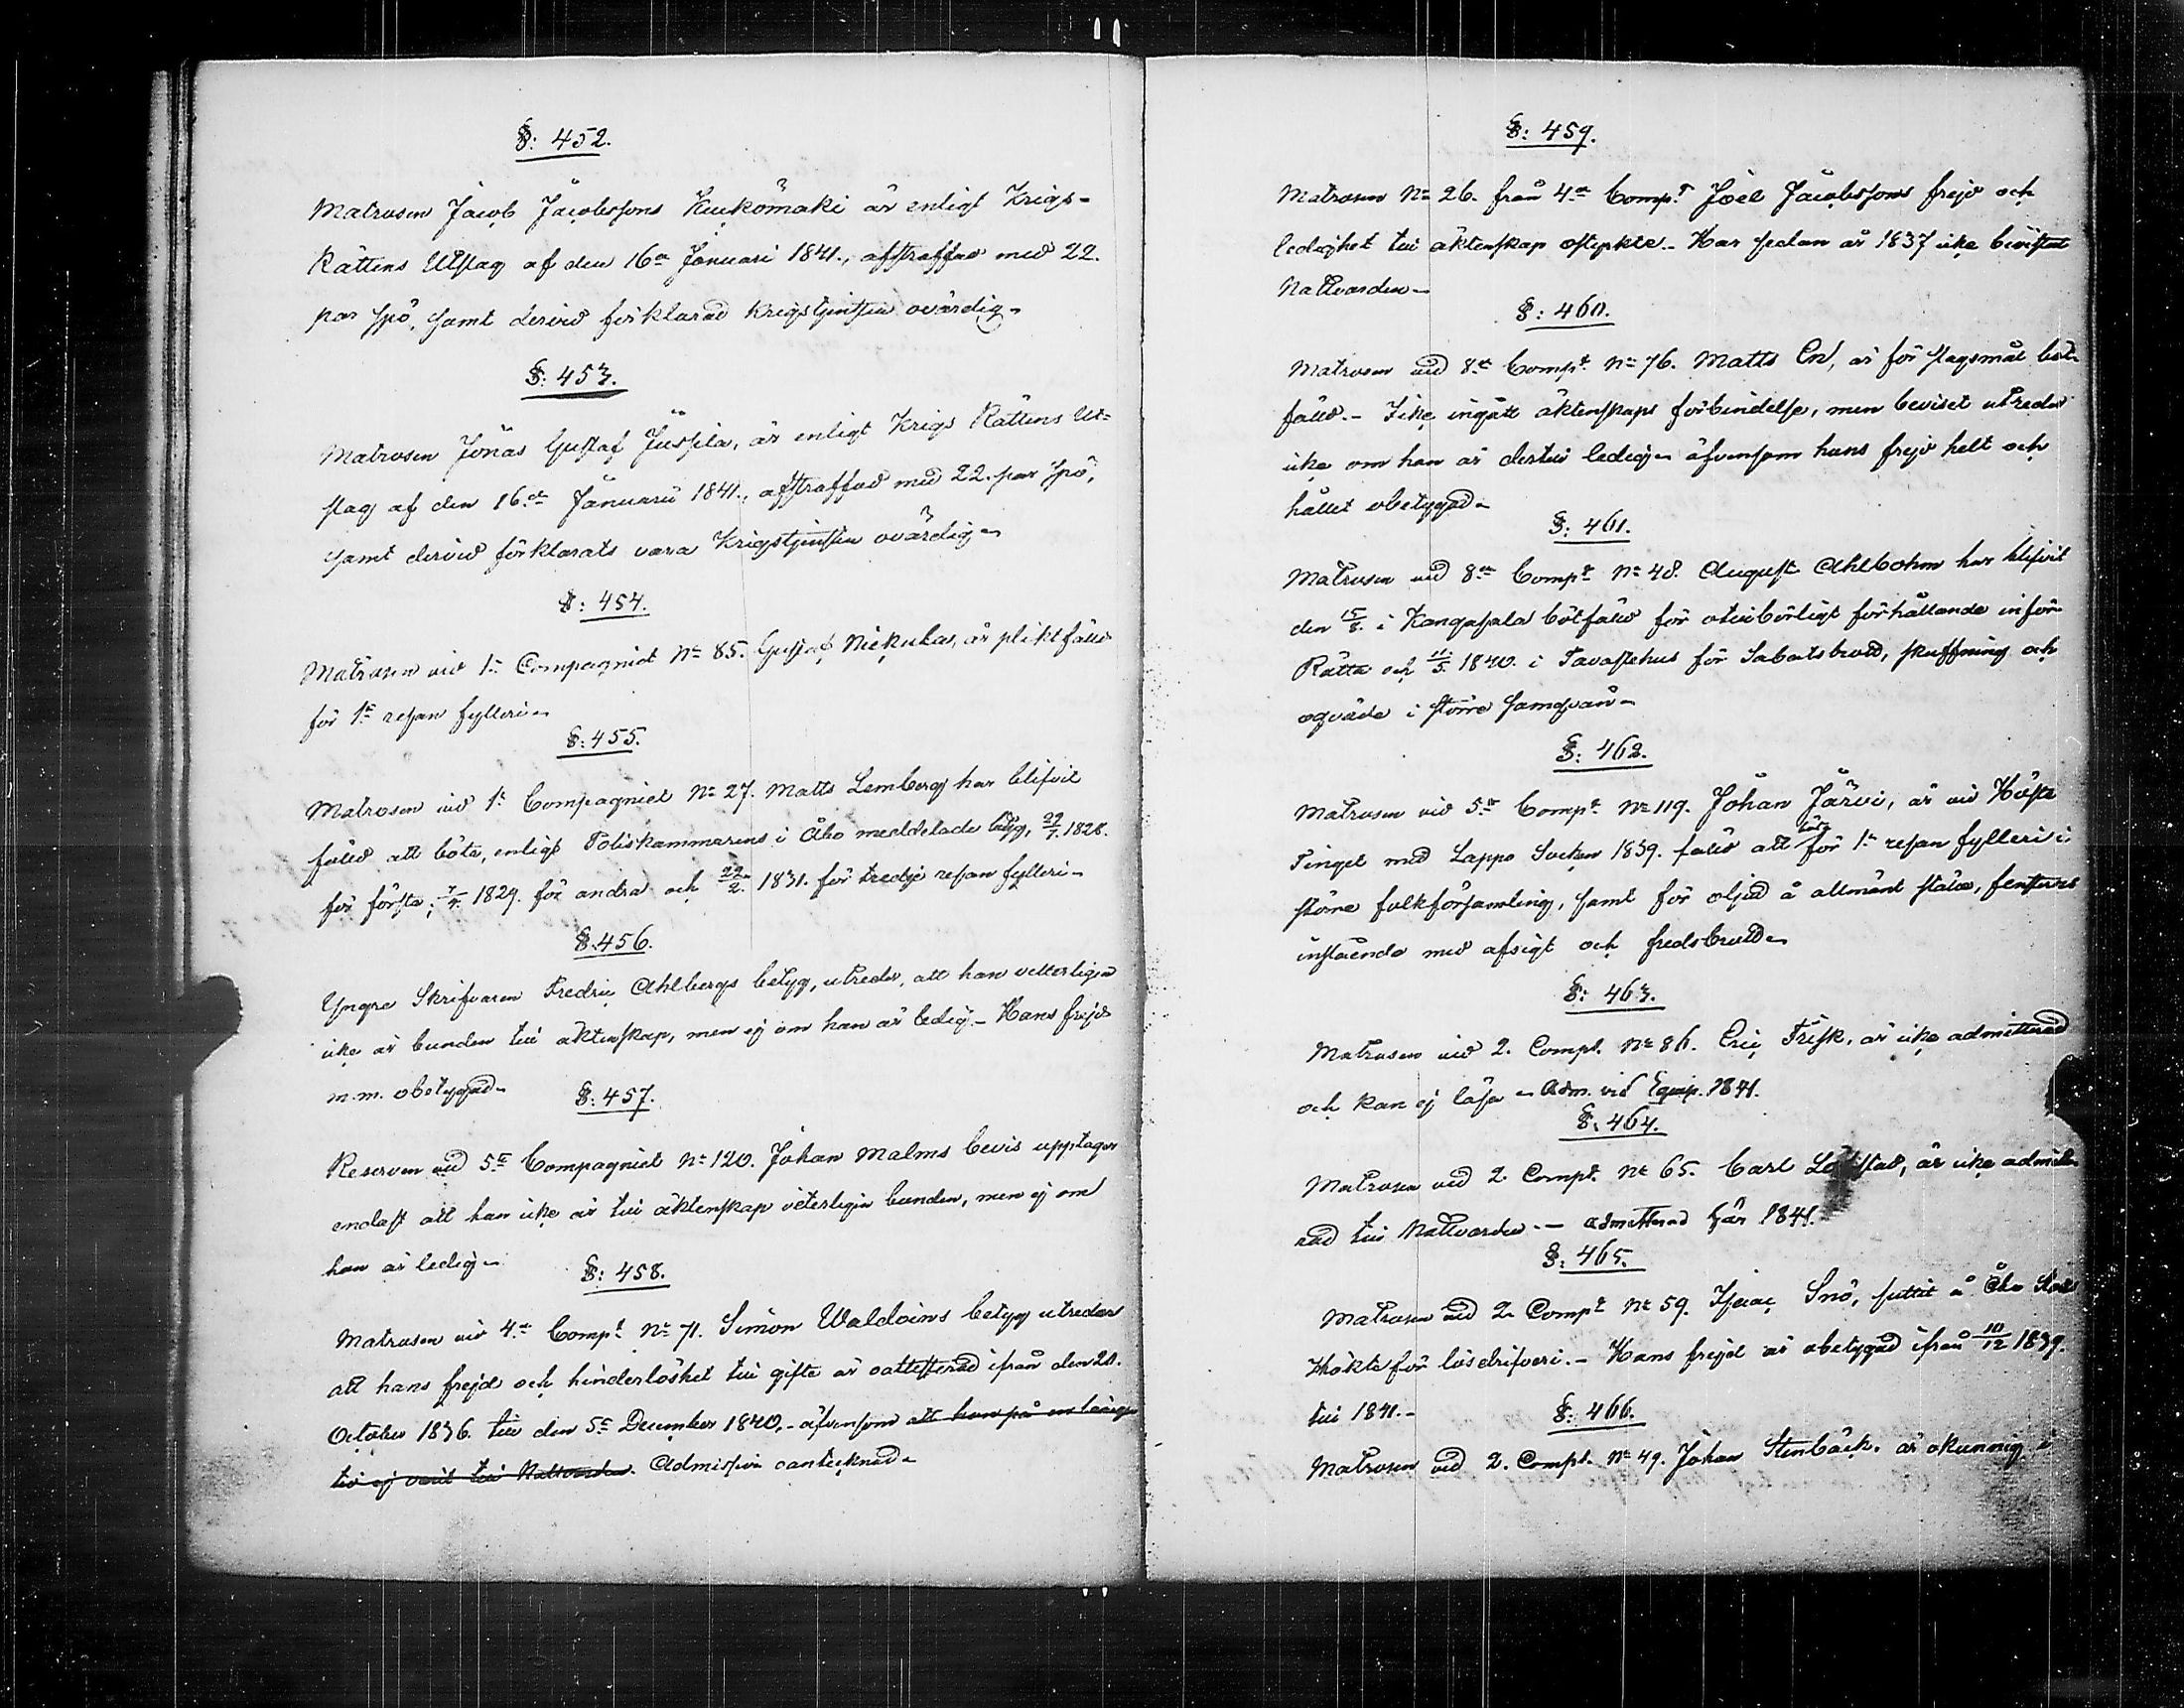 §: 452.
Matrosen Jacob Jacobssons Kuckomäki är enligt Krigs-
Rättens Utslag af den 16de Januari 1841., afstraffad med 22.
par spö, samt dervid förklarad krigstjensten ovärdig.
§: 453.
Matrosen Jonas Gustaf Jussila, är enligt Krigs Rättens Ut-
slag af den 16de Januarii 1841., afstraffad med 22. par spö,
samt dervid förklarats vara Krigstjensten ovärdig.
§: 454.
Matrosen vid 1a Compagniet No 85. Gustaf Niekula, är pliktfälld
för 1a resan fylleri.
§: 455.
Matrosen vid 1a Compagniet No 27. Matts Lemberg har blifvit
fälld att böta, enligt Poliskammarens i Åbo meddelade betyg, 29/7. 1828.
för första; 7/4. 1829. för andra och 22/2. 1831. för tredje resan fylleri.
§. 456.
Yngre Skrifvaren Fredric Ahlbergs betyg, utreder, att han vetterligen
icke är bunden till äktenskap, men ej om han är ledig. - Hans frejd
m.m. obetygad.
§: 457.
Reserven vid 5te Compagniet No 120. Johan Malms bevis upptager
endast att han icke är till äktenskap veterligen bunden, men ej om
han är ledig.
§: 458.
Matrosen vid 4de Compt No 71. Simon Waldoins betyg utreder
att hans frejd och hinderlöshet till gifte är oattesterad ifrån den 20.
October 1836. till den 5te December 1840, - äfvensom att han på en längre
tid ej varit till Nattvarden. Admission oantecknad.
§: 459.
Matrosen No 26. från 4de Compt Joel Jacobssons frejd och
ledighet till äktenskap ostyrkte. - Har sedan år 1837 icke bevistat
Nattvarden.
§: 460.
Matrosen vid 8de Compt No 76. Matts En, är för slagsmål böt-
fälld. - Icke ingått äktenskaps förbindelse, men beviset utreder
icke om han är dertill ledig, äfvensom hans frejd helt och
hållet obetygad.
§: 461.
Matrosen vid 8de Compt No 48. August Ahlbohm har blifvit
den 15/8. i Kangasala bötfälld för otillbörligt förhållande inför
Rätta och 11/5. 1840. i Tavastehus för Sabatsbrott, skuffning och
oqväde i större samqväm.
§: 462.
Matrosen vid 5te Compt No 119. Johan Järvi, är vid Höste
Tinget med Lappo Socken 1839. fälld att böta för 1a resan fylleri i
större folkförsamling, samt för oljud å allmänt ställe, fensters
inslående med afsigt och fredsbrott.
§: 463.
Matrosen vid 2. Compt. No 86. Eric Frisk, är icke admitterad
och kan ej läsa. Adm. vid Equip. 1841.
§: 464.
Matrosen vid 2 Compt. No 65. Carl är icke admitte-
rad till Nattvarden. — Admitterad här 1841.
§: 465.
Matrosen vid 2 Compt No 59. Isaac Snö, suttit å Åbo Slotts
Häkte för lösdrifveri. - Hans frejd är obetygad ifrån 10/12 1839.
till 1841. -
§: 466.
Matrosen vid 2. Compt. No 49. Johan Stenbäck, är okunnig i